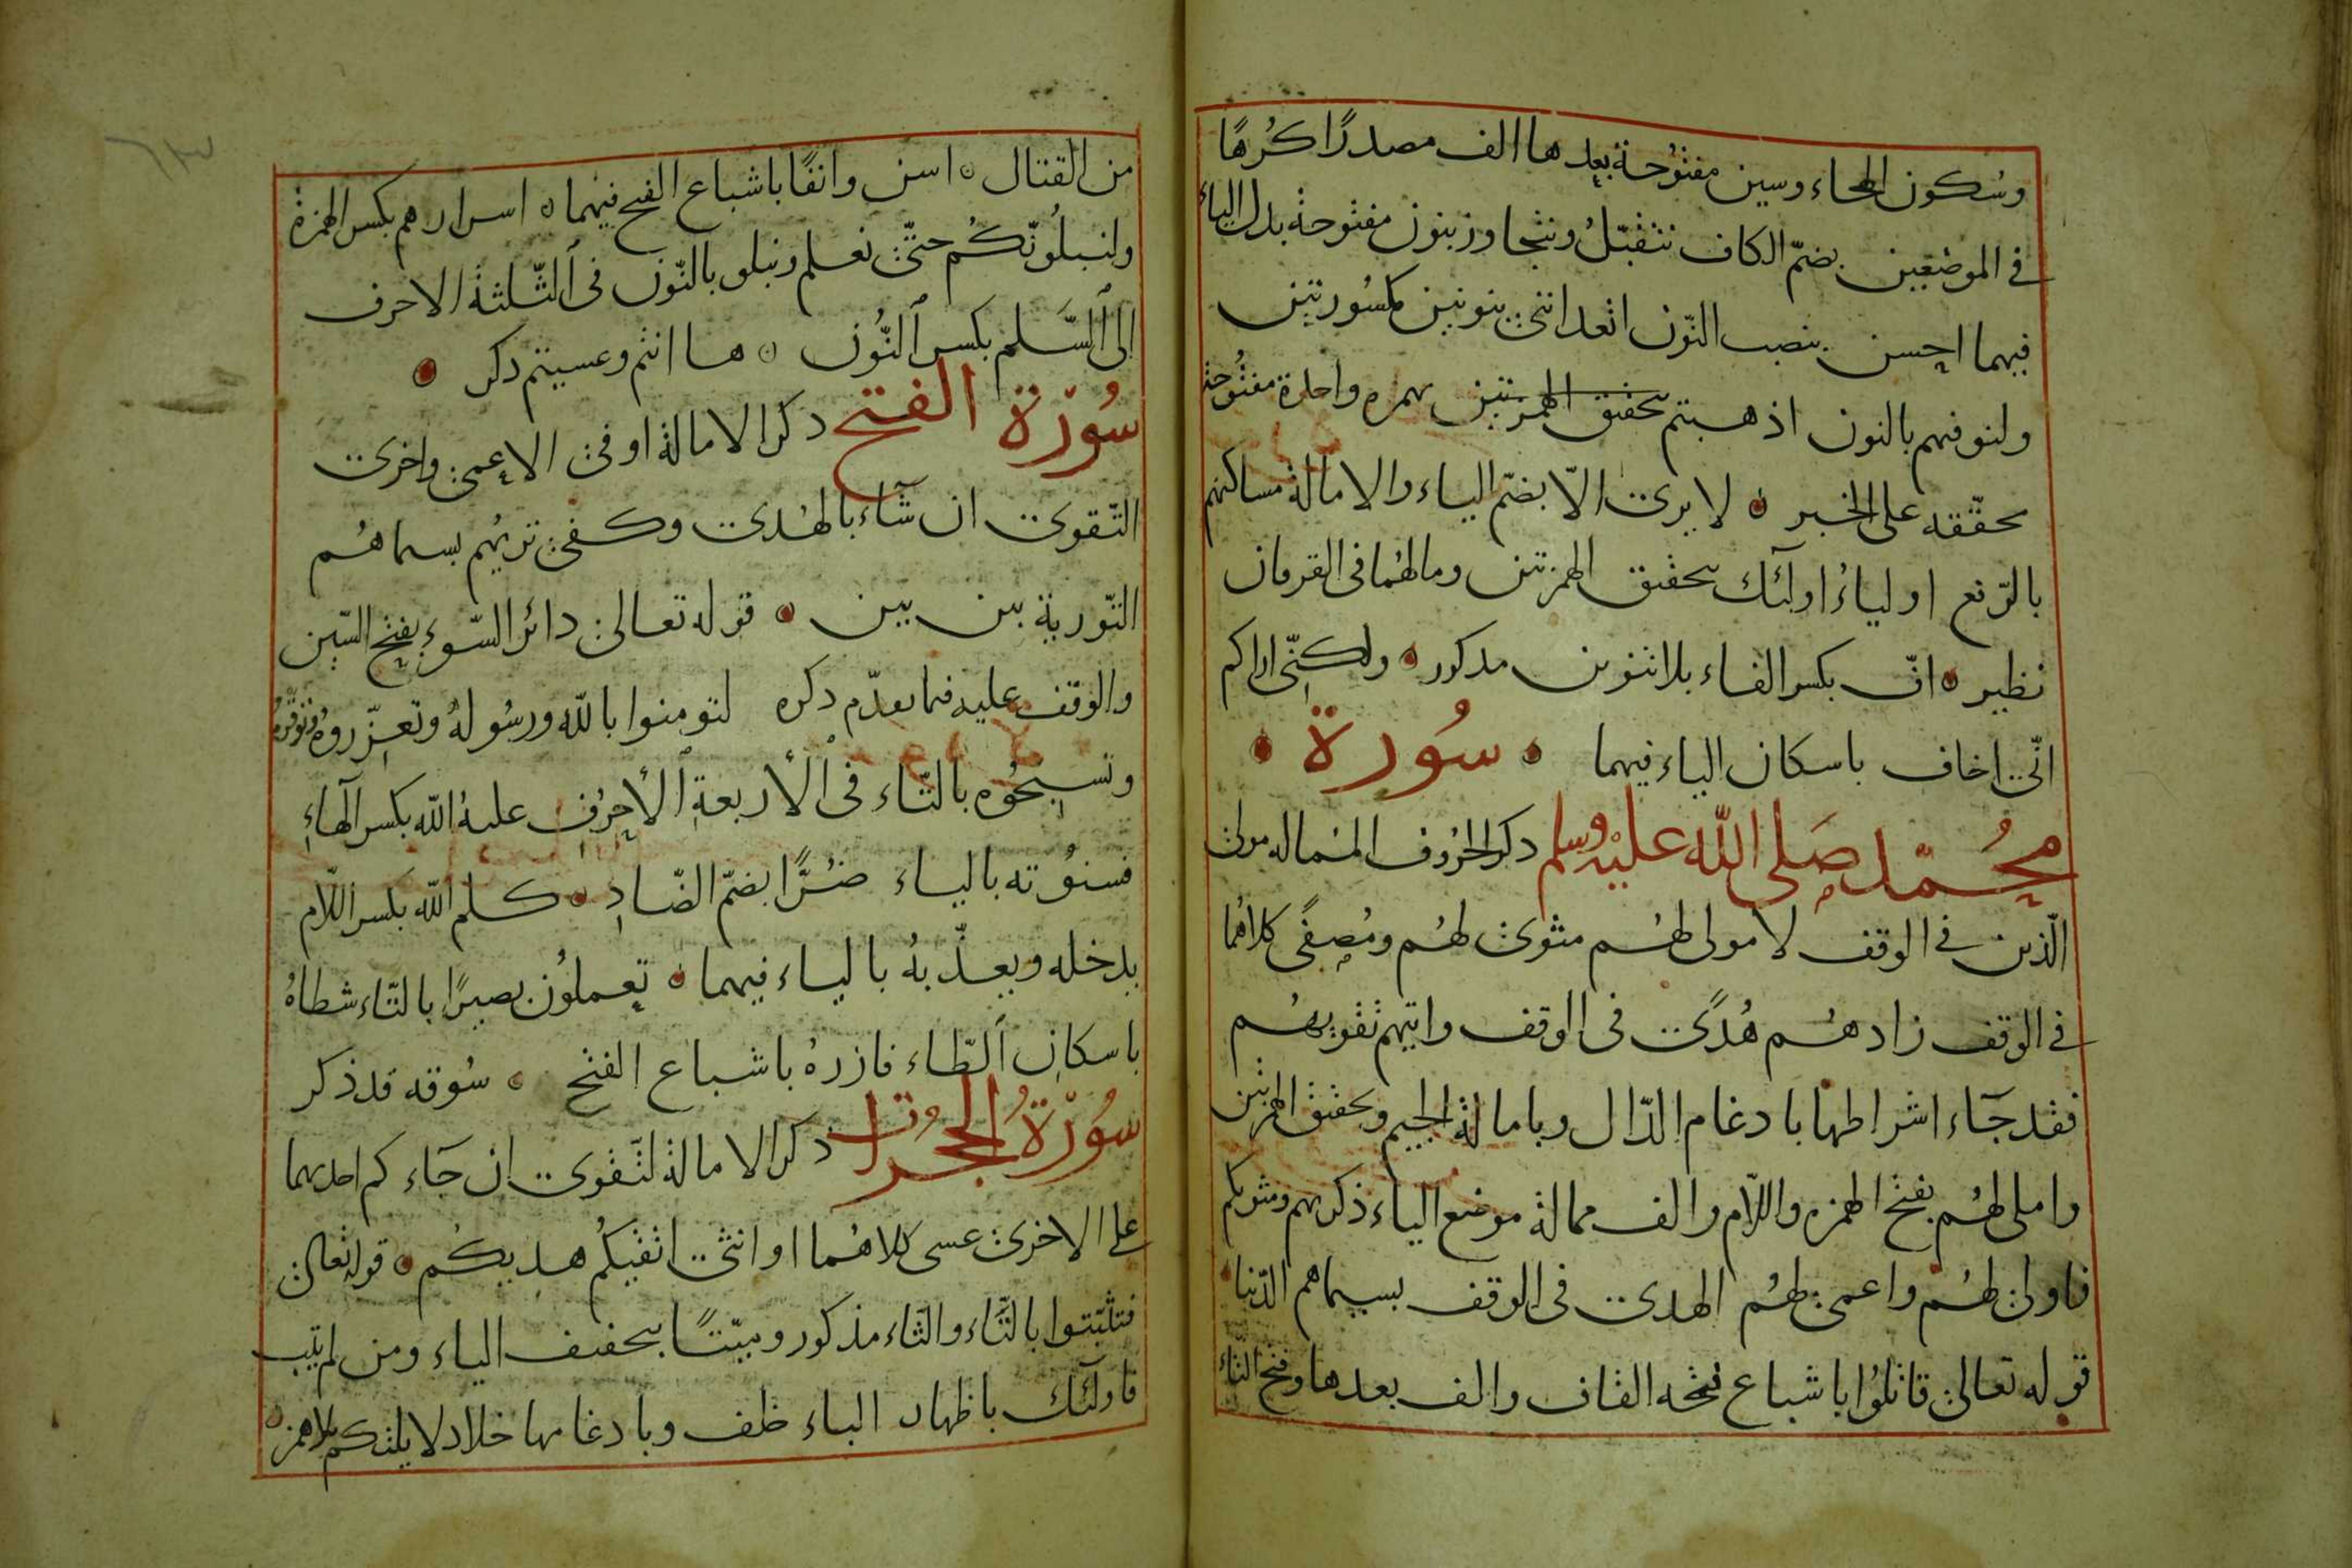 وسُكون الحاء وسين مفتوُحة بعدها الف مصدرًا كُرهًا
في الموضعين بضمّ الكاف نتقبّلُ ونتجاوز بنون مفتوحة بدل الياء
فيهما احسن بنصب النّون اتعداننى بنونين مكسُورتين
ولنوفيهم بالنون اذهبتم بحقيق الهمزتين بهمزه واحدة مفتُوحة
محقّقه على الخبر ٥ لا يرى الاّ بضمّ الياء والامالة مساكنهم
بالرّفع اولياءُ اولٓئك بتحقيق الهمزتين ومالهُما فى القرءان
نظير ٥ افّ بكسر الفاء بلا تنوين مذكور ٥ ولكنّى اراكم
انّى اخاف باسكان الياء فيهما ٥ سُورة
محُمّد صَلى اللّه عليْه وسلم ذكر الحُروف المُماله مولى
الّذين في الوقف لا مولى لهُم مثوى لهُم ومُصفًى كلاهُما
في الوقف زادهُم هُدًى فى الوقف واتيهم تقويهُم
فقد جَاء اشراطها بادغام الدّال وبامالة الجيم وبحقيق الهمزتين
واملى لهُم بفتح الهمزه واللّام والف ممالة موضع الياء ذكريهم ومثويكم
فاولى لهُم واعمى لهُم الهدى فى الوقف بسيماهم الدّنيا
قوله تعالى قاتلُوا باشباع فتحه القاف والف بعدها وفتح التاء
من القتال ٥ اسن وانفًا باشباع الفتح فيهما ٥ اسرارهم بكسر الهمزة
ولنبلُونّكُم حتّى نعلم ونبلو بالنّون فى الثّلثة الاحرف
الى السَّلم بكسر النُّون ٥ ها انتم وعسيتم ذكر
سُوْرة الفتح ذكر الامالة اوفى الاعمى واخرى
التّقوى ان شَآء بالهُدى وكفى تريهُم بسماهُم
التّورية بين بين ٥ قوله تعالى دائر السّوء بفتح السّين
والوقف عليه فيما تقدّم ذكره لتومنوا باللّه ورسُولهُ وتعزّروهُ وتوقّرهُ
وتسبّحُوه بالتّاء فى الأربعة الأحرُف عليهُ اللّه بكسر الهآءِ
فسنوُته بالياء ضُرًّا بضمّ الضّادِ ٥ كلم اللّه بكسر اللّام
يدخله ويعذّبهُ بالياء فيهما ٥ تعملوُن بصيرًا بالتّاء شطاهُ
باسكان الطّاء فازرهُ باشباع الفتح ٥ سُوقه قد ذكر
سُوْرةُ الحُجُرات ذكر الامالة لتّقوى ان جَاء كم احديهما
على الاخرى عسى كلاهُما او انثى اتقيكُم هديكُم ٥ قوله تعالى
فتثبّتوا بالثّاء والتّاء مذكور وميّتًا بتحفيف الياء ومن لم يتب
فاولٓئك باظهار الباء خلف وبادغامها خلاد لا يلتكم بلا همز